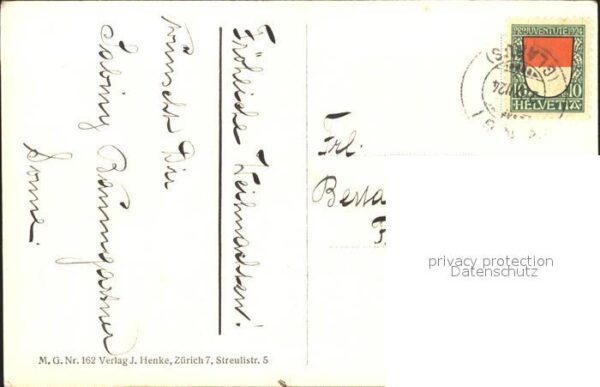 Fröhliche Weihnachten!
wünscht Dir
Baumgartner
Frl.
Berta
PRO JUVENTUTE 1924
10
HELVETIA
(GLARUS)
privacy protection
Datenschutz
M. G. Nr. 162 Verlag J. Henke, Zürich 7, Streulistr. 5